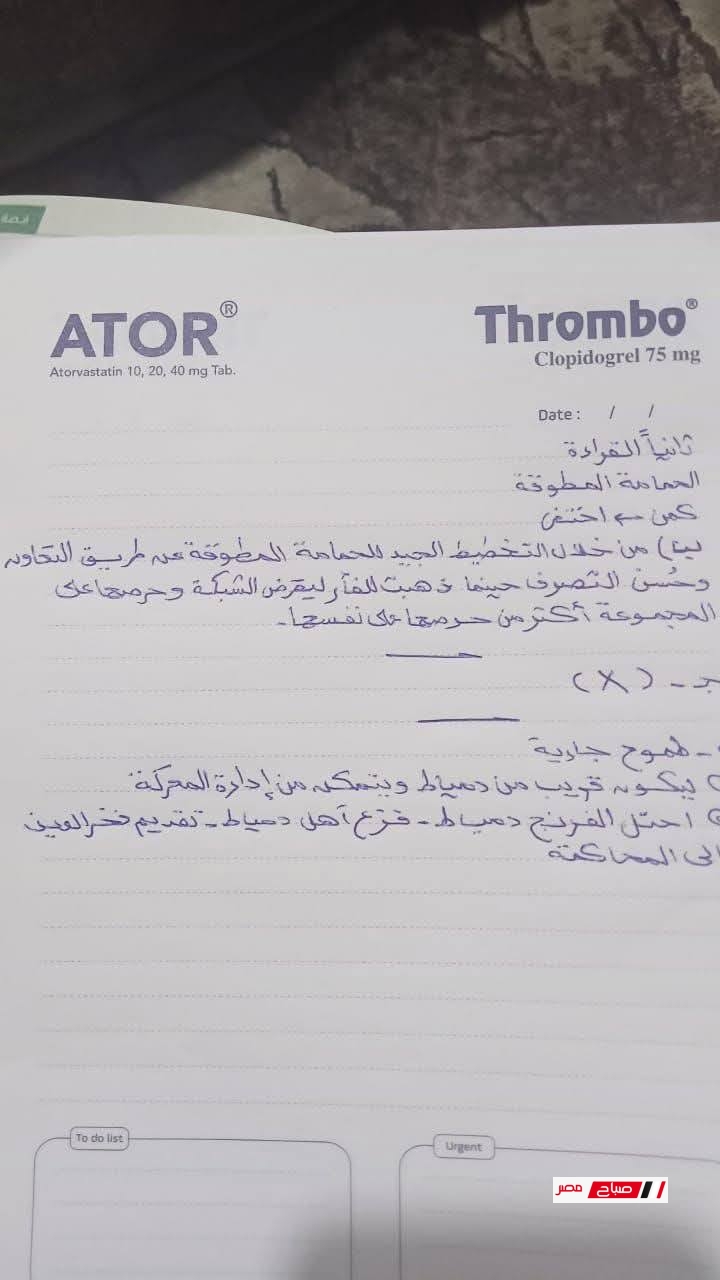 ATOR®
Atorvastatin 10, 20, 40 mg Tab.
Thrombo®
Clopidogrel 75 mg
Date : / /
ثانياً القراءة
الحمامة المطوقة
كمن ← اختفى
ب) من خلال التخطيط الجيد للحمامة المطوقة عن طريق التعاون
وحُسن التصرف حينما ذهبت للفأر ليقرض الشبكة وحرصها على
المجموعة أكتر من حرصها على نفسها.
جـ - (X)
- طموح جارية
ليكون قريب من دمياط ويتمكن من إدارة المعركة
احتل الفرنج دمياط - فزع آهل دمياط - تقديم فخر الدين
الى المحاكمة
To do list
Urgent
صباح مصر